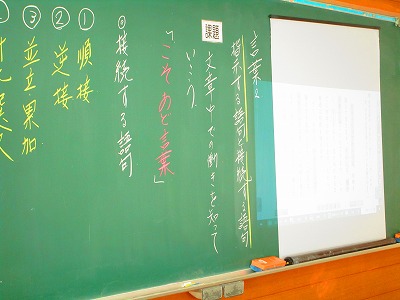 言葉2
指示する語句と接続する語句
課題
文章中での働きを知って
いこう。
「こそあど言葉」
◎接続する語句
① 順接
② 逆接
③ 並立 累加